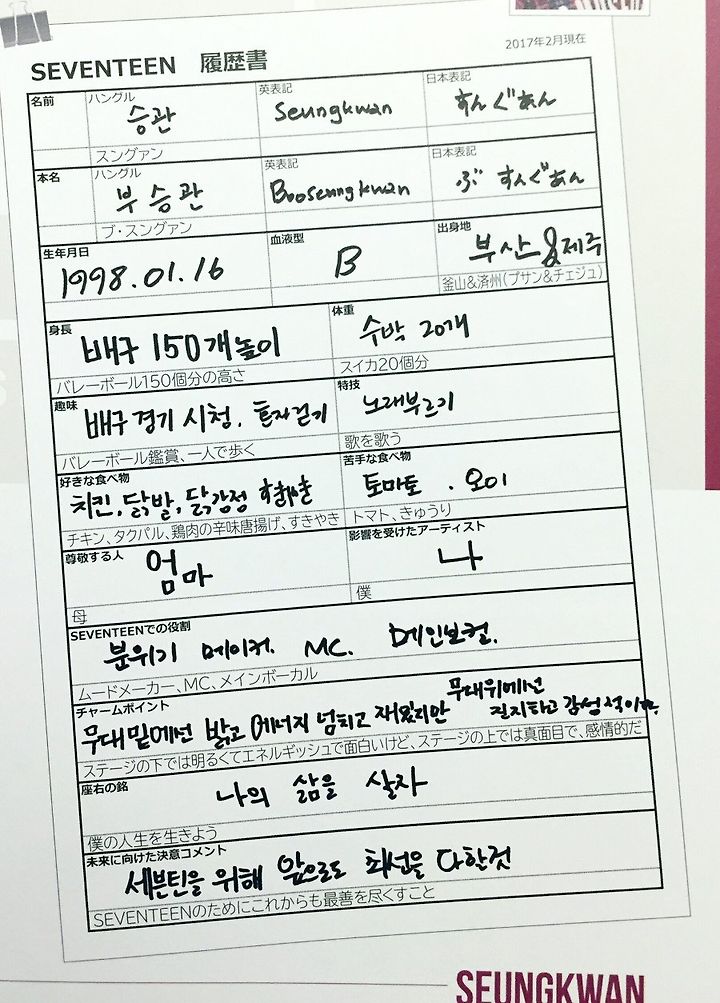 SEVENTEEN 履歴書
2017年2月現在
名前
ハングル
승관
英表記
Seungkwan
日本表記
すんぐぁん
スングァン
本名
ハングル
부승관
英表記
Booseungkwan
日本表記
ぶ すんぐぁん
ブ・スングァン
生年月日
1998.01.16
血液型
B
出身地
부산&제주
釜山&済州(プサン&チェジュ)
身長
배구 150개높이
バレーボール150個分の高さ
体重
수박 20개
スイカ20個分
趣味
배구 경기 시청. 혼자걷기
バレーボール鑑賞、一人で歩く
特技
노래부르기
歌を歌う
好きな食べ物
치킨, 닭발, 닭강정 すきやき
チキン、タクパル、鶏肉の辛味唐揚げ、すきやき
苦手な食べ物
토마토 . 오이
トマト、きゅうり
尊敬する人
엄마
母
影響を受けたアーティスト
나
僕
SEVENTEENでの役割
분위기 메이커. MC. 메인보컬.
ムードメーカー、MC、メインボーカル
チャームポイント
무대밑에선 밝고 에너지 넘치고 재밌지만 무대위에선
진지하고 감성적이다.
ステージの下では明るくてエネルギッシュで面白いけど、ステージの上では真面目で、感情的だ
座右の銘
나의 삶을 살자
僕の人生を生きよう
未来に向けた決意コメント
세븐틴을 위해 앞으로도 최선을 다할것
SEVENTEENのためにこれからも最善を尽くすこと
SEUNGKWAN